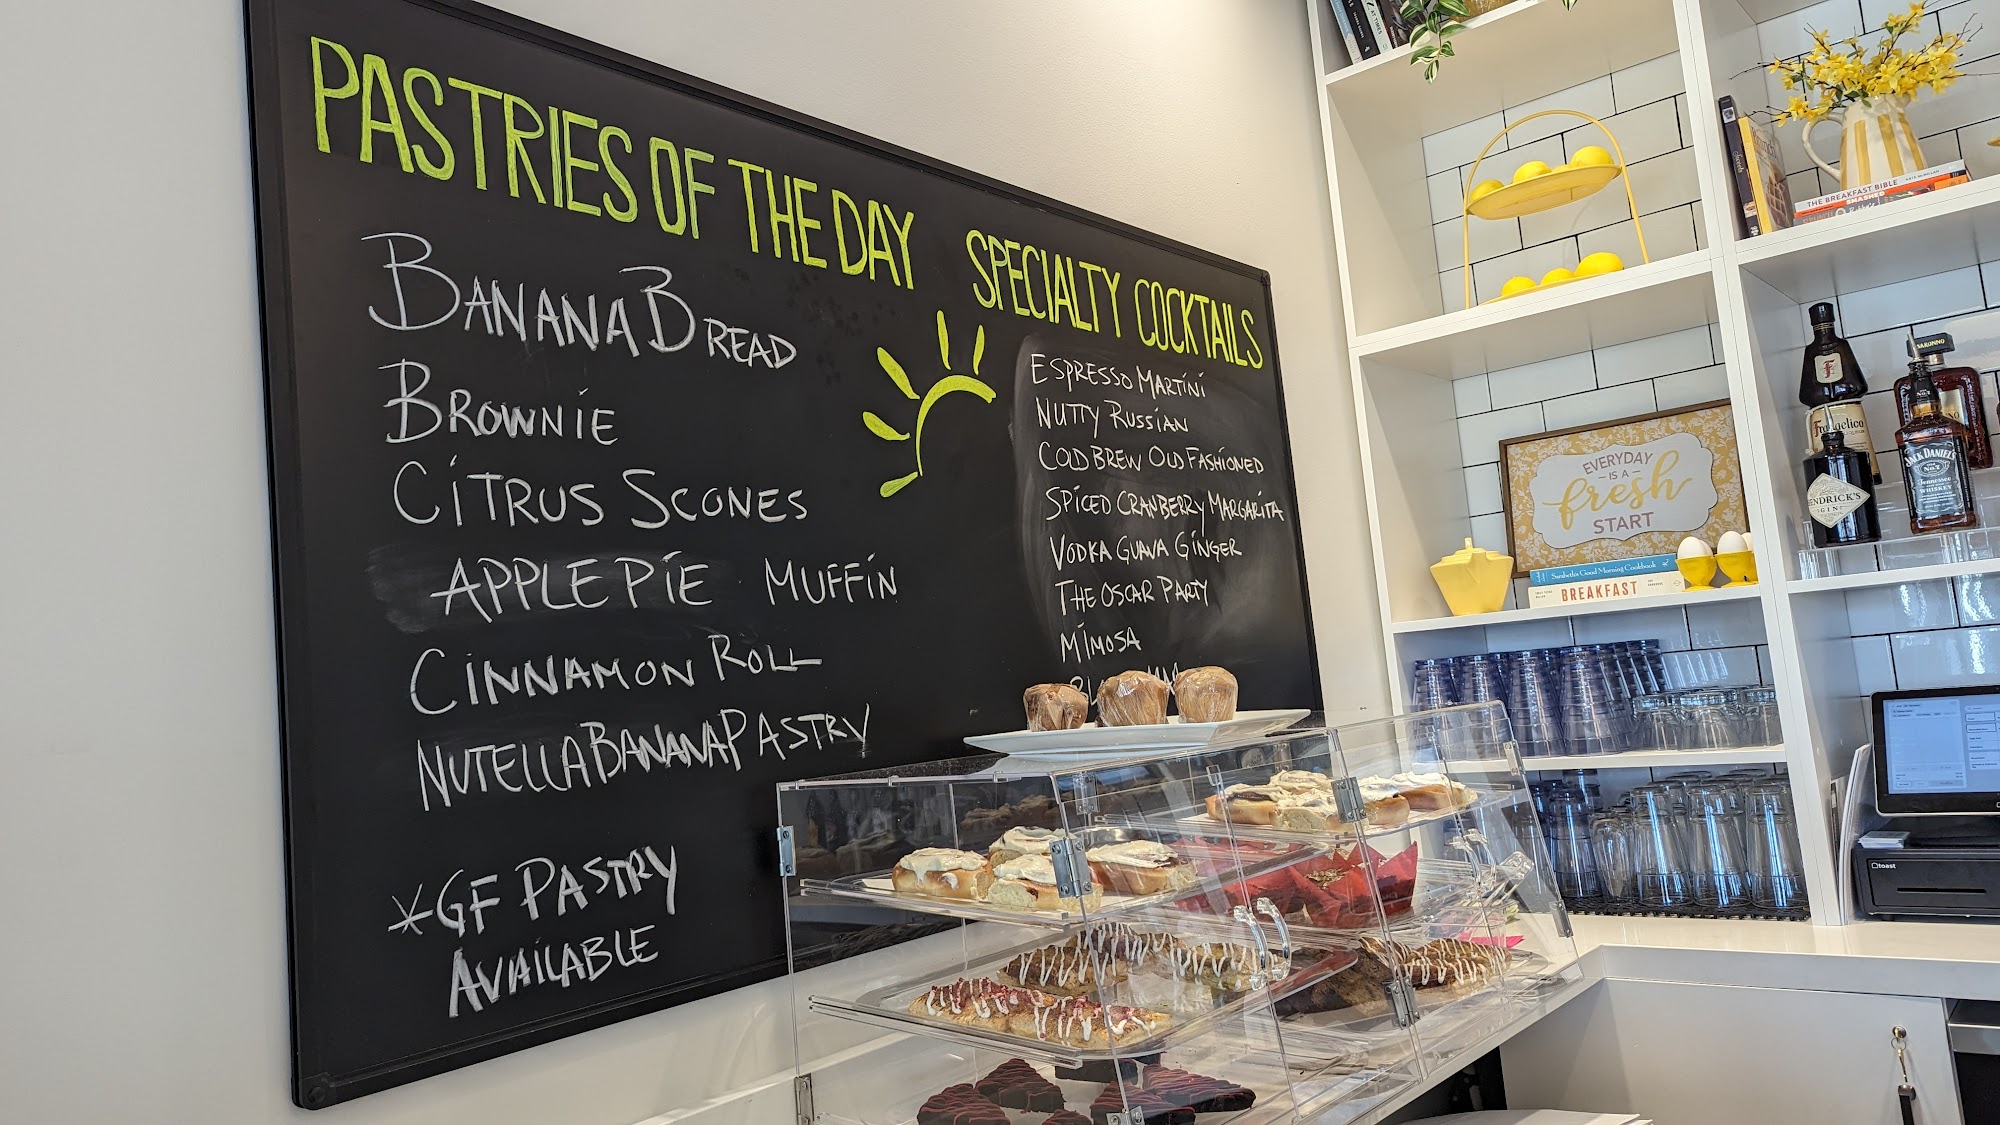 PASTRIES OF THE DAY
BANANA BREAD
BROWNIE
CITRUS SCONES
APPLE PIE MUFFIN
CINNAMON ROLL
NUTELLA BANANA PASTRY
*GF PASTRY
AVAILABLE
SPECIALTY COCKTAILS
ESPRESSO MARTINI
NUTTY RUSSIAN
COLD BREW OLD FASHIONED
SPICED CRANBERRY MARGARITA
VODKA GUAVA GINGER
THE OSCAR PARTY
MIMOSA
THE BREAKFAST BIBLE
SMASHED
EVERYDAY
IS A
fresh
START
Sarabeth's Good Morning Cookbook
BREAKFAST
Frangelico
HENDRICK'S
GIN
JACK DANIEL'S
Tennessee
WHISKEY
toast